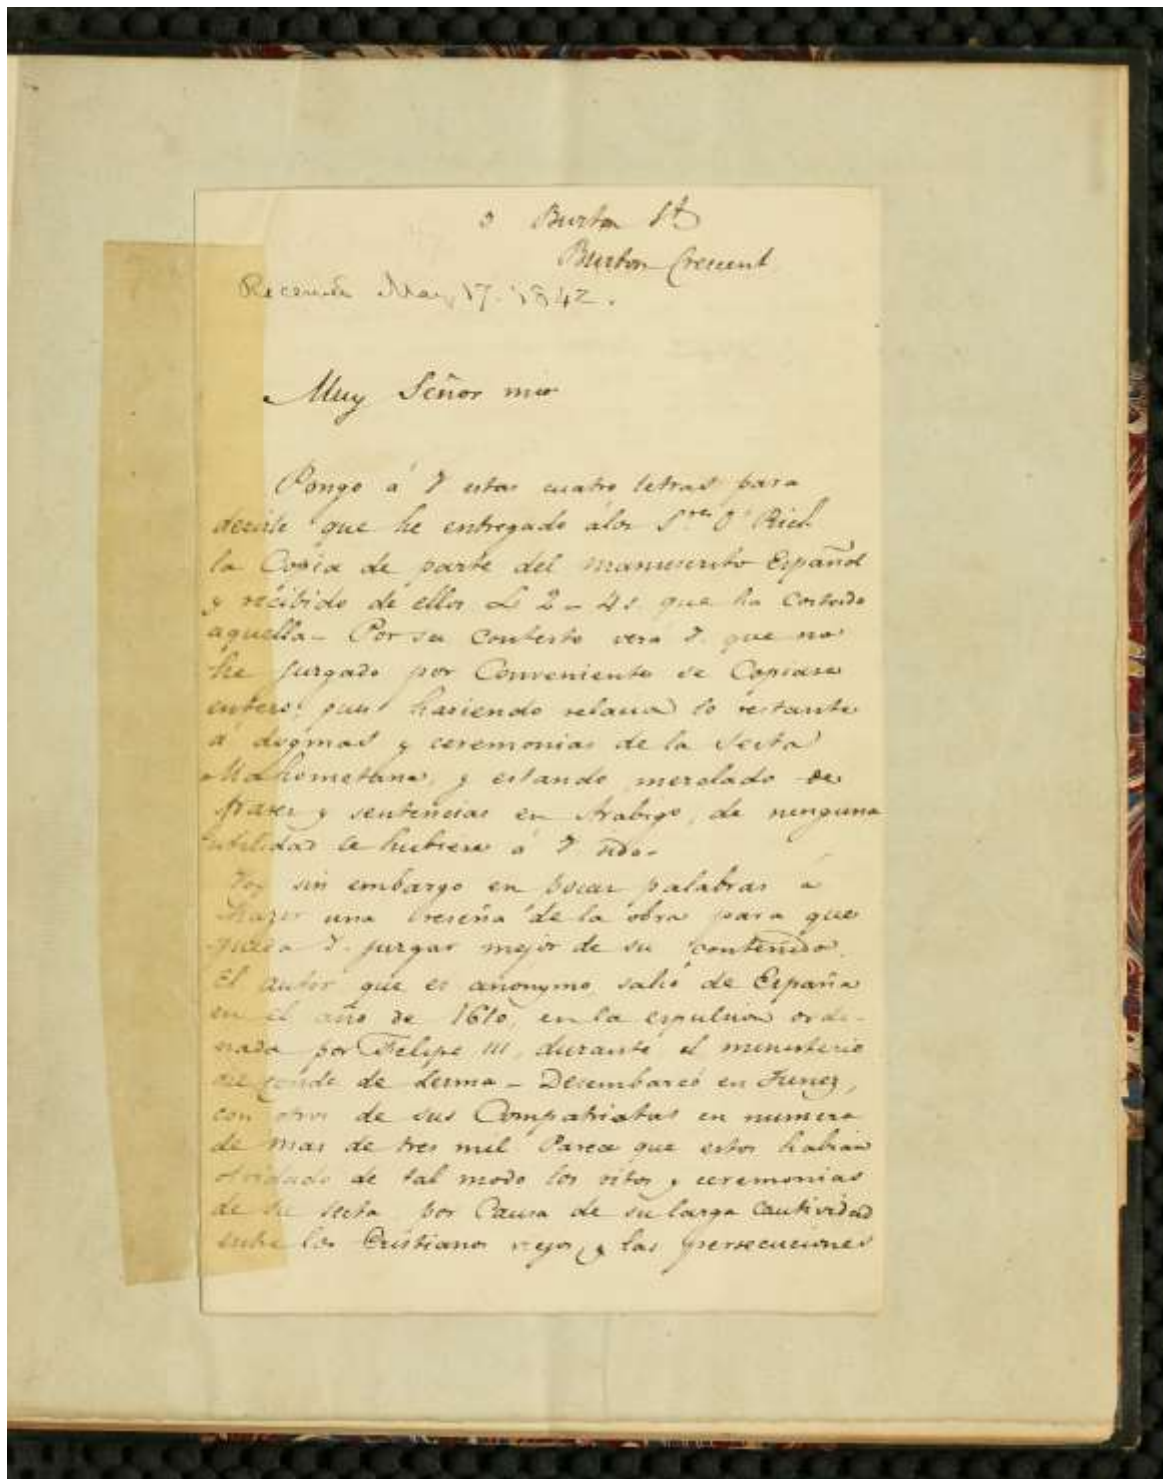 3 Burton St
Burton Crescent
Received May 17. 1842.
Muy Señor mio
Pongo á V estas cuatro letras para
decirle que he entregado álos Sres O. Rich
la Copia de parte del manuscrito Español
y récibido de ellos L 2 - 4 s. que ha costado
aquella - Por su Contesto vera V. que no
he jurgado por Conveniente se Copiase
entero; pues haciendo relacion lo restante
á dogmas y ceremonias de la Secta
Mahometana, y estando mezclado de
frases y sentencias en Arabigo, de ninguna
utilidad le hubiera á V sido.
Voy sin embargo en pocas palabras á
hazer una reseña de la obra para que
pueda V. jurgar mejor de su contenido.
El autor que es anonymo, salió de España
en el año de 1610, en la espulsion orde-
nada por Felipe III, durante el ministerio
del Conde de Lerma - Desembarcó en Tunez,
con otros de sus Compatriotas en numero
de mas de tres mil. Parece que estos habian
olvidado de tal modo los ritos y ceremonias
de su secta por Causa de su larga Cautividad
entre los Cristianos viejos, y las persecuciones